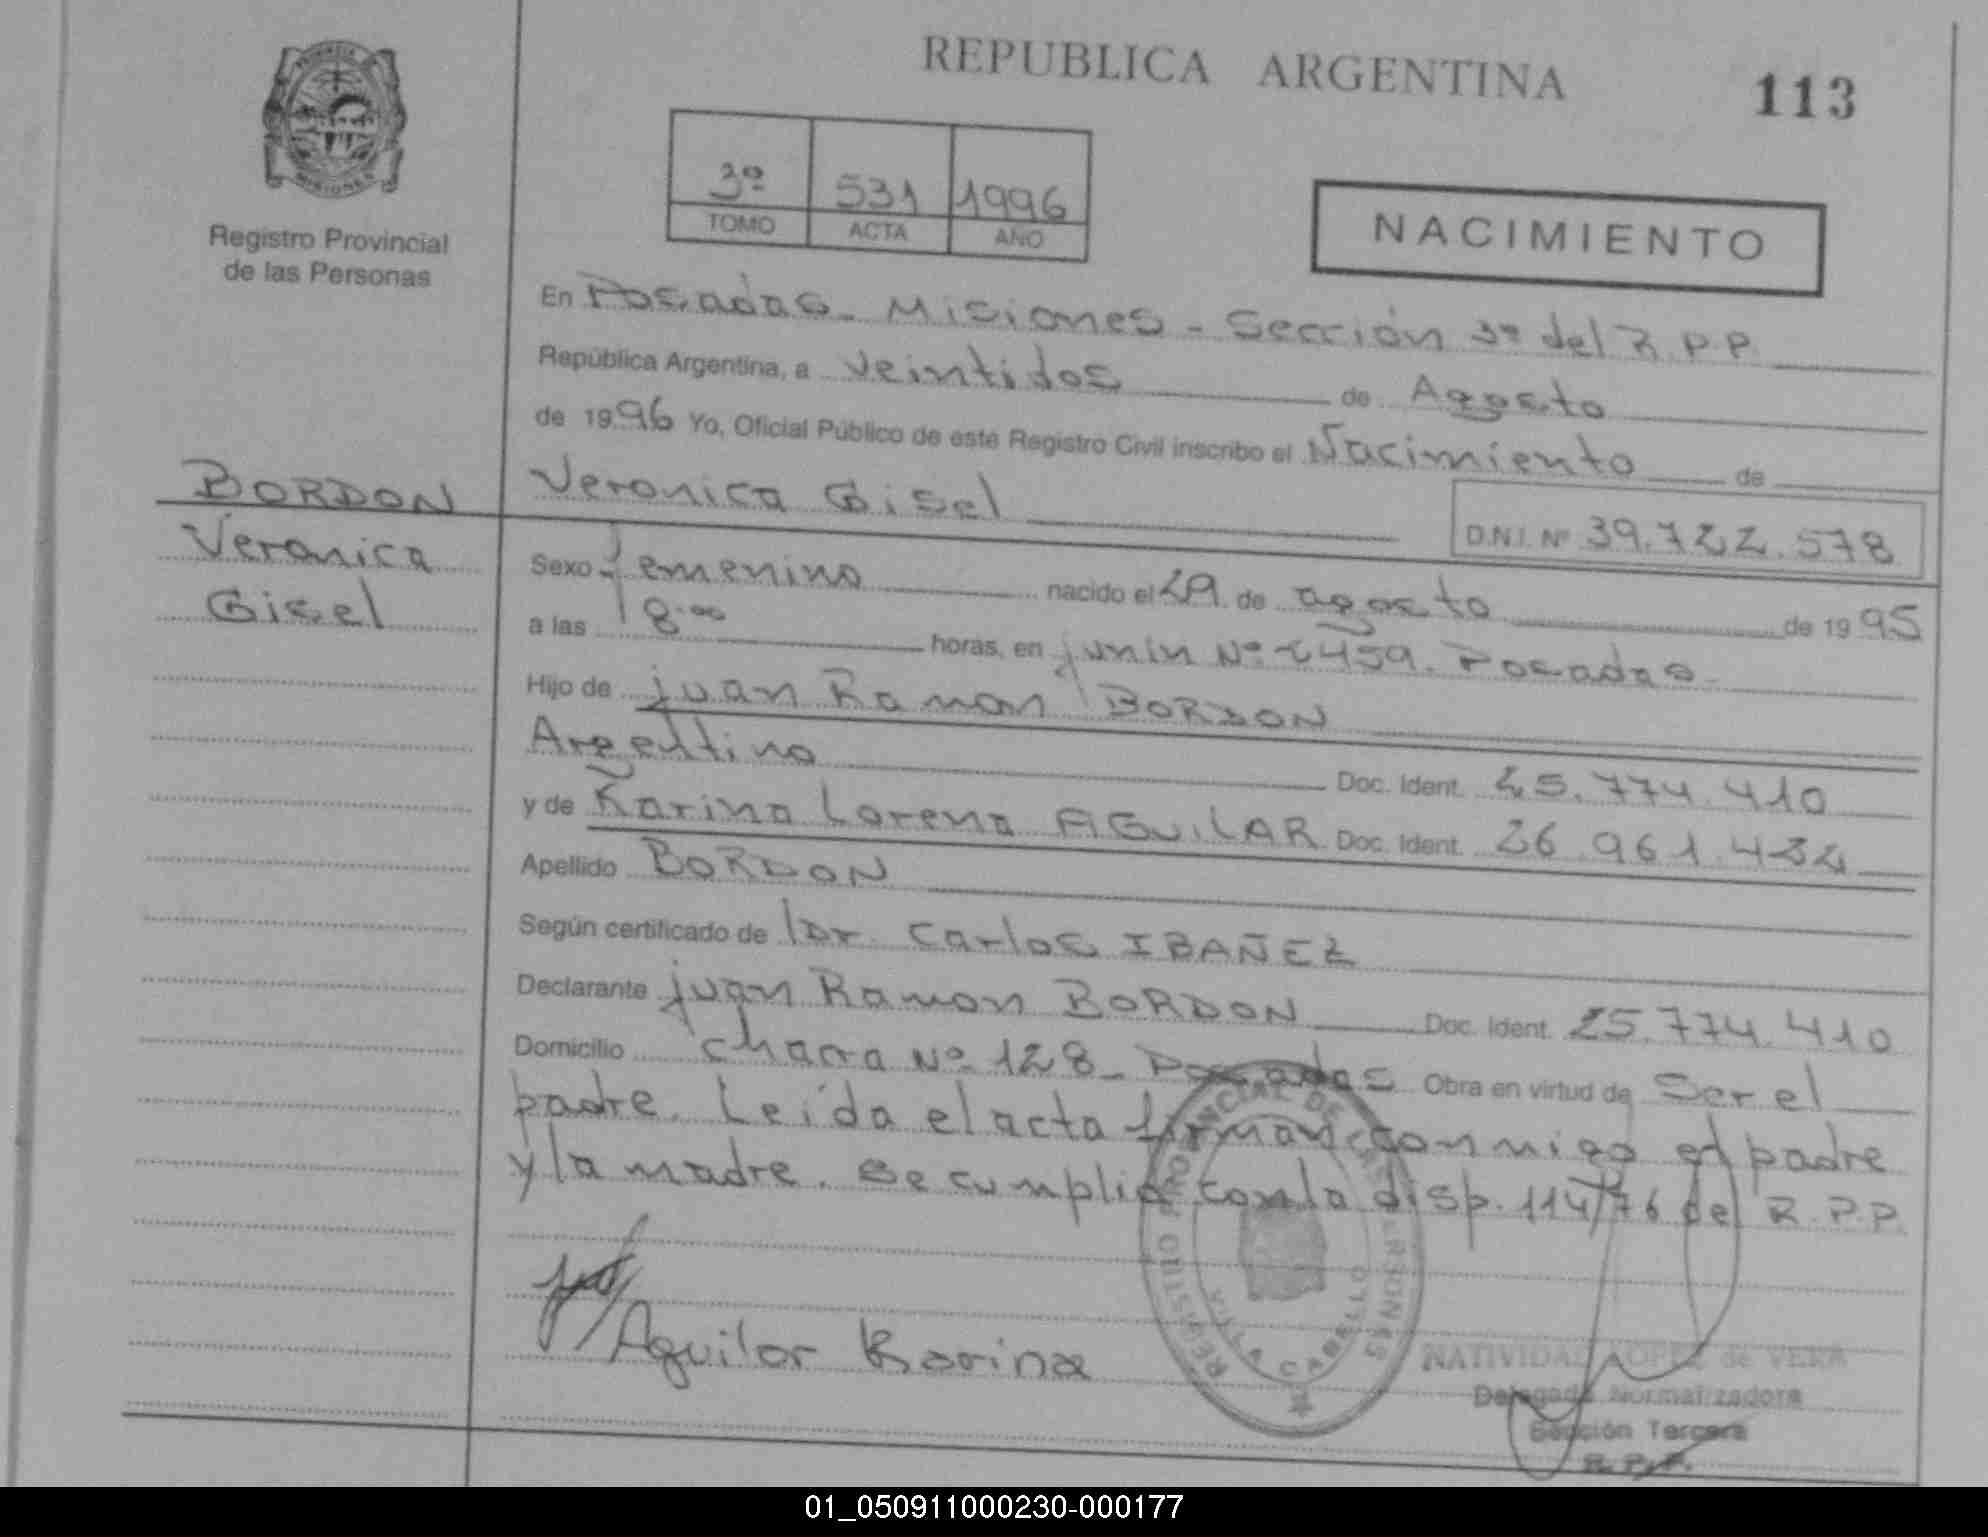 REPUBLICA ARGENTINA
113
PROVINCIA
MISIONES
Registro Provincial
de las Personas
3º 531 1996
TOMO ACTA AÑO
NACIMIENTO
En Posadas - Misiones - Sección 3º del R.P.P.
República Argentina, a veintidos de Agosto
de 1996 Yo, Oficial Público de este Registro Civil inscribo el Nacimiento de
Veronica Gisel
D.N.I. Nº 39.722.578
BORDON
Veronica
Gisel
Sexo femenino nacido el 29 de agosto de 1995
a las 8.00 horas, en junin Nº 2459. Posadas.
Hijo de juan Ramon BORDON
Argentino Doc. Ident. 25.774.410
y de Karina Lorena AGUILAR Doc. Ident. 26.961.422
Apellido BORDON
Según certificado de Dr. Carlos IBAÑEZ
Declarante juan Ramon BORDON Doc. Ident. 25.774.410
Domicilio chacra Nº 128 - Posadas Obra en virtud de Ser el
padre. Leída el acta firman conmigo el padre
y la madre. Se cumplió con la disp. 114/76 del R.P.P.
Aguilar Karina
REGISTRO PROVINCIAL DE LAS PERSONAS
VILLA CABELLO
NATIVIDAD LOPEZ de VERA
Delegada Normalizadora
Sección Tercera
R. P. P.
01_050911000230-000177